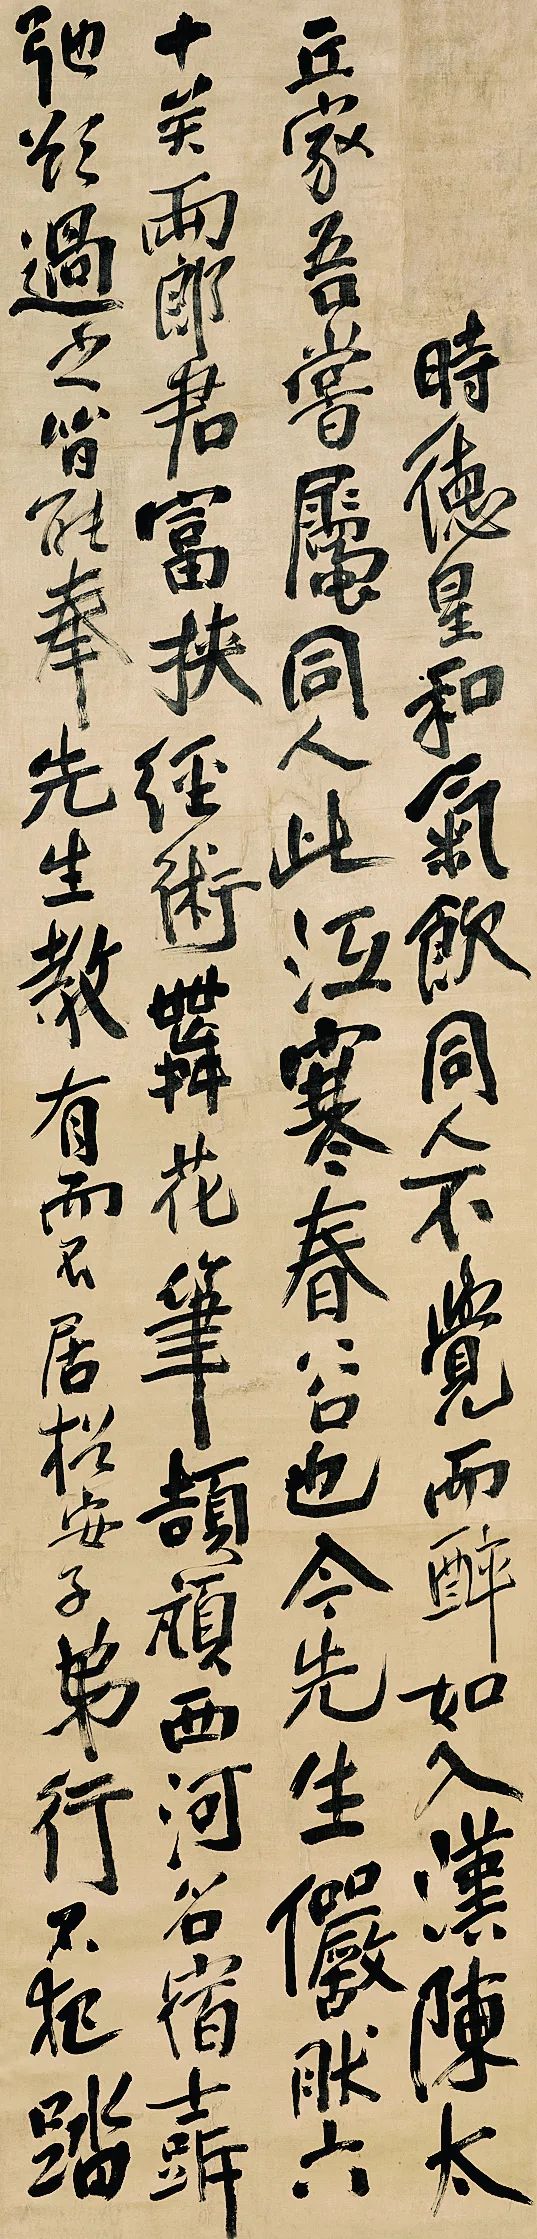 時德星和氣飲同人不覺而醉如入漢陳太
丘家吾嘗屬同人此沍寒春谷也今先生儼然六
十矣兩郎君富挾經術舞花筆頡頏西河名宿士
弛然過之皆能奉先生教有而不居松安子弟行不犯踏